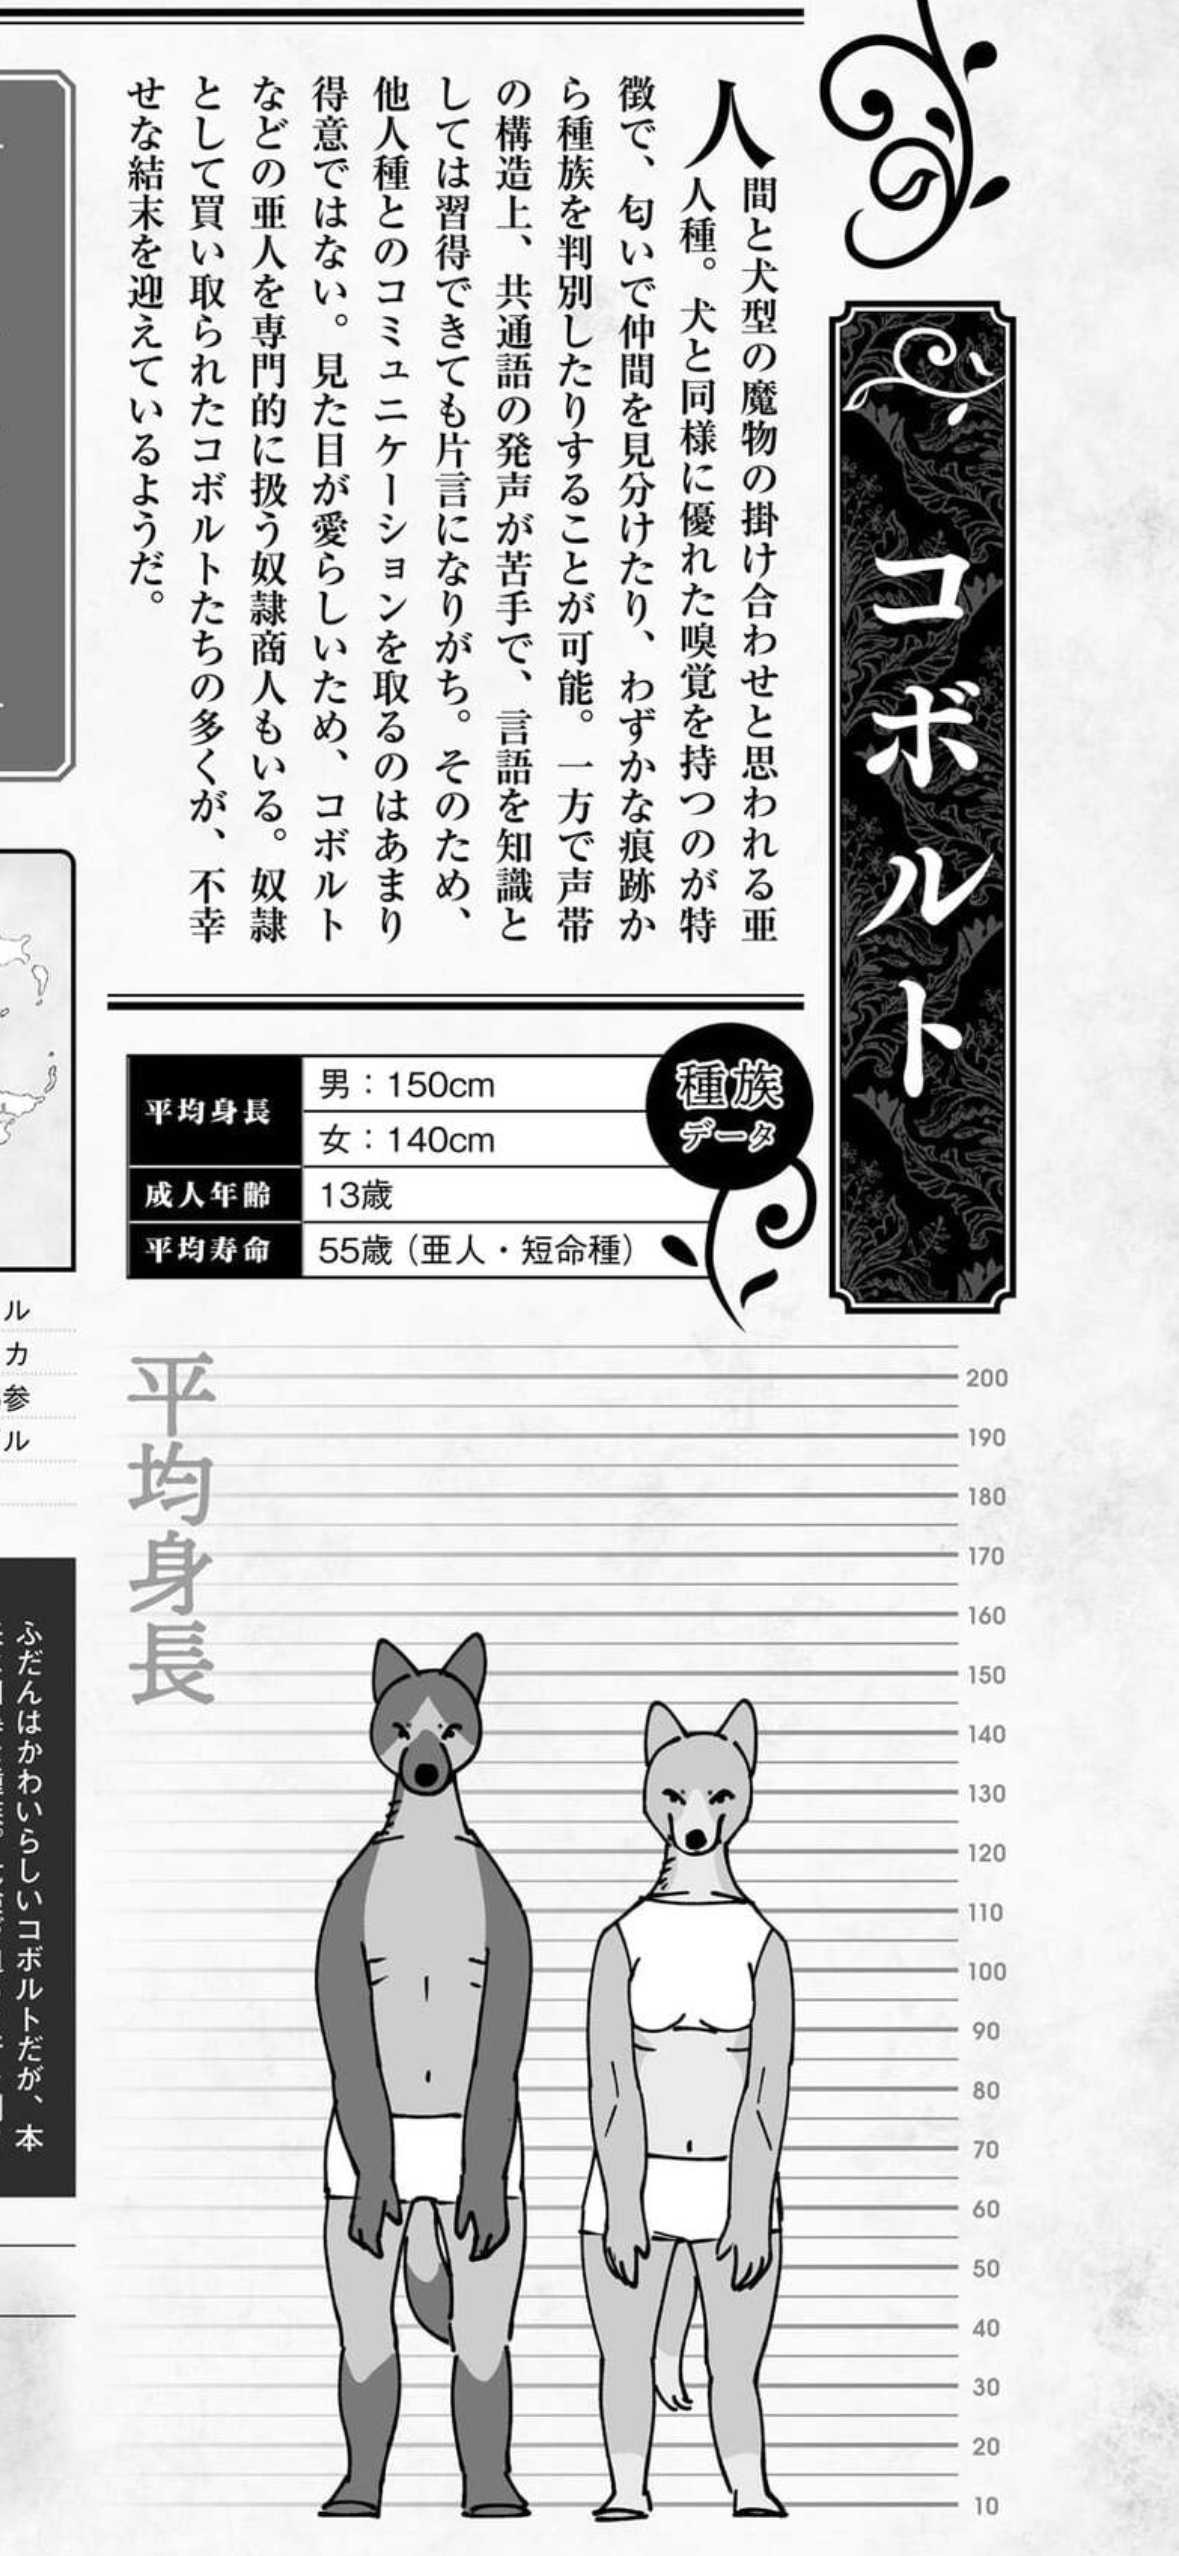 コボルト
人間と犬型の魔物の掛け合わせと思われる亜
人種。犬と同様に優れた嗅覚を持つのが特
徴で、匂いで仲間を見分けたり、わずかな痕跡か
ら種族を判別したりすることが可能。一方で声帯
の構造上、共通語の発声が苦手で、言語を知識と
しては習得できても片言になりがち。そのため、
他人種とのコミュニケーションを取るのはあまり
得意ではない。見た目が愛らしいため、コボルト
などの亜人を専門的に扱う奴隷商人もいる。奴隷
として買い取られたコボルトたちの多くが、不幸
せな結末を迎えているようだ。
種族
データ
平均身長
男：150cm
女：140cm
成人年齢 13歳
平均寿命 55歳（亜人・短命種）
平均身長
200
190
180
170
160
150
140
130
120
110
100
90
80
70
60
50
40
30
20
10
ル
カ
参
ル
ふだんはかわいらしいコボルトだが、本